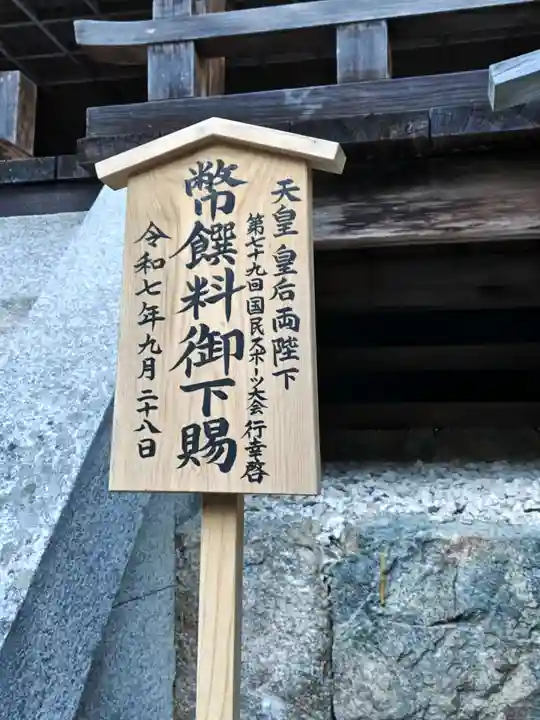 天皇皇后両陛下
第七十九回国民スポーツ大会行幸啓
幣饌料御下賜
令和七年九月二十八日